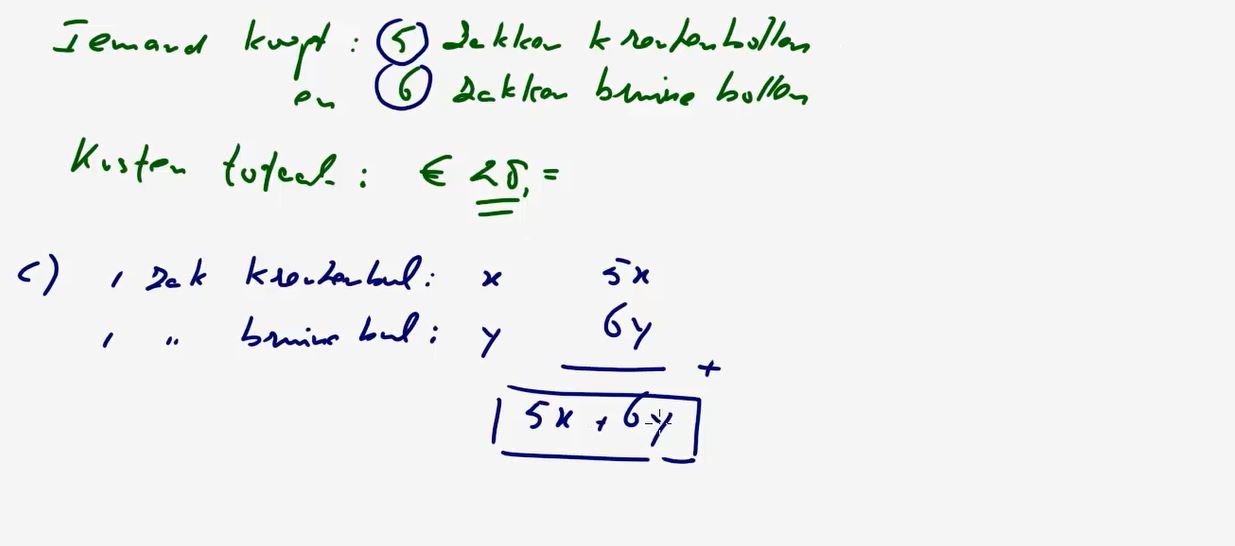 Iemand koopt : 5 zakken krentenbollen
en 6 zakken bruine bollen
Kosten totaal : € 28,=
c) 1 zak krentenbol : x 5x
1 " bruine bol : y 6y
+
5x + 6y